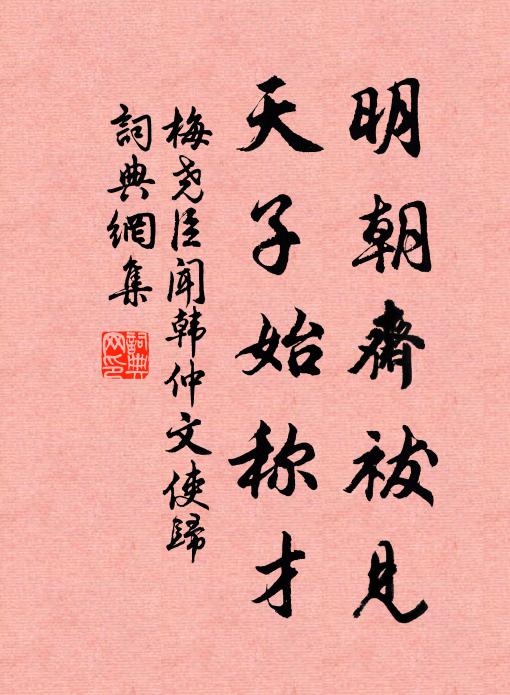 明朝齋祓見
天子始称才
梅尧臣闻韩仲文使歸
詞典網集
詞典网印